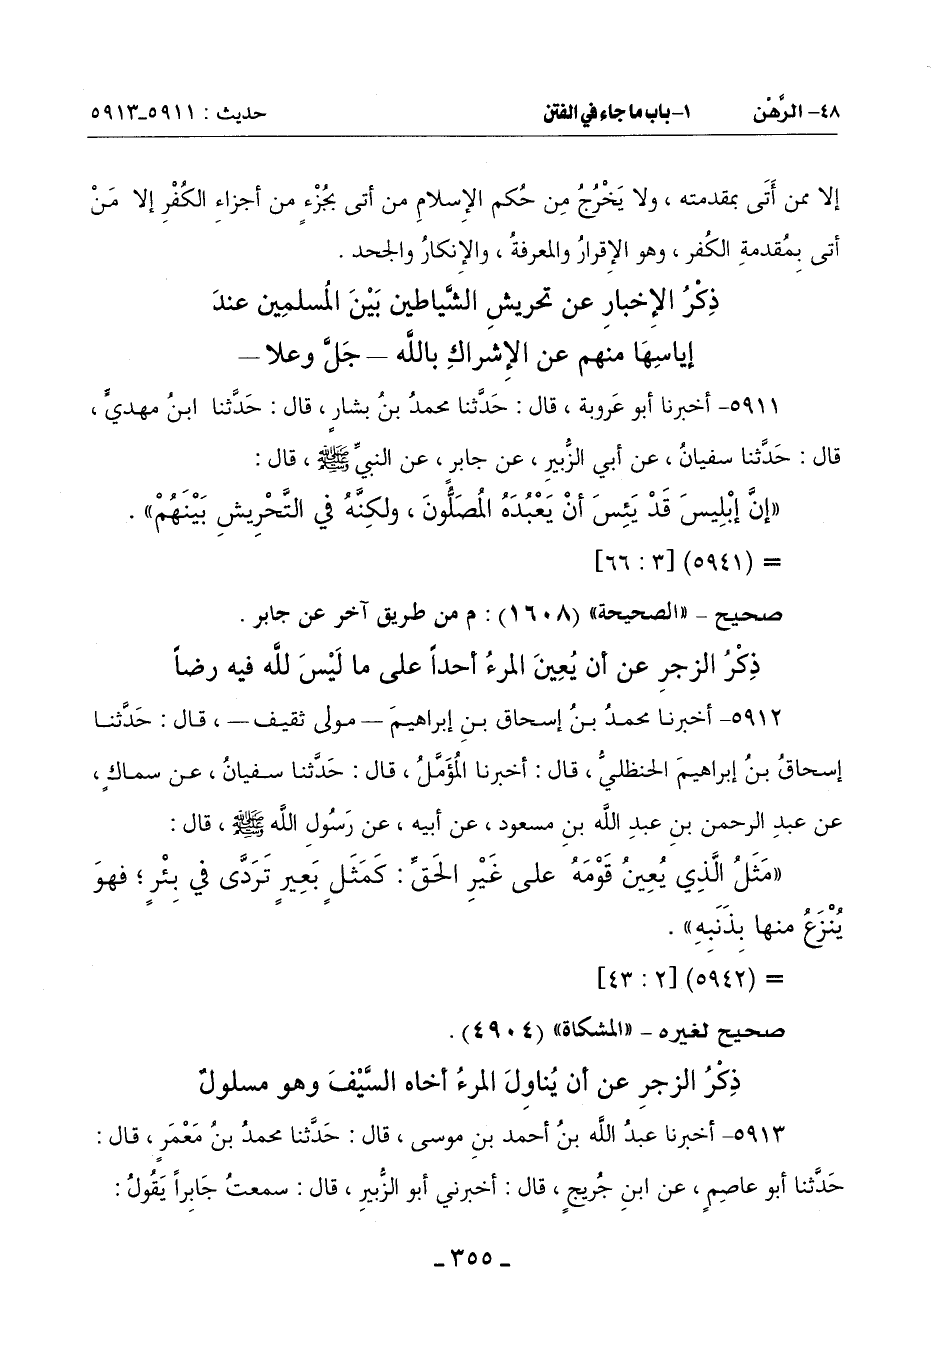 ٤٨- الرَّهْن ١- باب ما جاء في الفتن حديث : ٥٩١١ـ٥٩١٣
إلا ممن أَتَى بمقدمته ، ولا يَخْرُجُ مِن حُكم الإسلامِ من أتى بجُزْءٍ من أجزاءِ الكُفْرِ إلا مَنْ
أتى بِمُقدمةِ الكُفر ، وهو الإقرارُ والمعرفةُ ، والإنكارُ والجحد .
ذِكْرُ الإخبارِ عن تحريشِ الشَّياطين بَيْنَ المُسلمِين عندَ
إياسِهَا منهم عن الإشراكِ باللَّه – جَلَّ وعلا –
٥٩١١- أخبرنا أبو عَروبة ، قال : حَدَّثنا محمدُ بنُ بشارٍ ، قال : حَدَّثنا ابنُ مهديٍّ ،
قال : حَدَّثنا سفيانُ ، عن أبي الزُّبيرِ ، عن جابرٍ ، عن النبيِّ ﷺ ، قال :
«إنَّ إبْلِيسَ قَدْ يَئِسَ أنْ يَعْبُدَهُ المُصَلُّونَ ، ولكِنَّهُ في التَّحْرِيشِ بَيْنَهُمْ» .
= (٥٩٤١) [٣ : ٦٦]
صحيح – «الصحيحة» (١٦٠٨) : م من طريق آخر عن جابر .
ذِكْرُ الزجرِ عن أن يُعِينَ المرءُ أحداً على ما لَيْسَ للَّه فيه رضاً
٥٩١٢- أخبرنا محمدُ بنُ إسحاق بنِ إبراهيمَ – مولى ثقيف – ، قال : حَدَّثنا
إسحاقُ بنُ إبراهيمَ الحنظليُّ ، قال : أخبرنا المُؤَمَّلُ ، قال : حَدَّثنا سفيانُ ، عن سماكٍ ،
عن عبدِ الرحمن بنِ عبدِ اللَّه بنِ مسعود ، عن أبيه ، عن رَسُولِ اللَّه ﷺ ، قال :
«مَثَلُ الَّذِي يُعِينُ قَوْمَهُ على غَيْرِ الحَقِّ : كَمَثَلِ بَعِيرٍ تَرَدَّى في بِئْرٍ ؛ فهوَ
يُنْزَعُ منها بِذَنَبِهِ» .
= (٥٩٤٢) [٢ : ٤٣]
صحيح لغيره – «المشكاة» (٤٩٠٤) .
ذِكْرُ الزجرِ عن أن يُناوِلَ المرءُ أخاه السَّيْفَ وهو مسلولٌ
٥٩١٣- أخبرنا عبدُ اللَّه بنُ أحمد بنِ موسى ، قال : حَدَّثنا محمدُ بنُ مَعْمَرٍ ، قال :
حَدَّثنا أبو عاصِمٍ ، عن ابنِ جُريجٍ ، قال : أخبرني أبو الزُّبيرِ ، قال : سمعتُ جَابِراً يَقُولُ :
ـ ٣٥٥ ـ